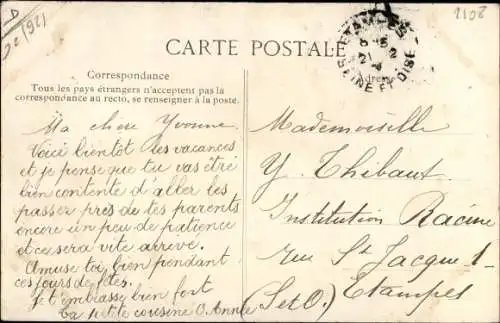 D
2108
CARTE POSTALE
ETAMPES
21
SEINE ET OISE
Correspondance
Adresse
Tous les pays étrangers n'acceptent pas la
correspondance au recto, se renseigner à la poste.
Ma chère Yvonne
Voici bientôt les vacances
et je pense que tu vas être
bien contente d'aller les
passer près de tes parents
encore un peu de patience
et ce sera vite arrivé.
Amuse toi bien pendant
ces jours de fêtes.
Je t'embrasse bien fort
ta petite cousine O. Année
Mademoiselle
Y. Thibaut
Institution Racine
rue St Jacques
Etampes
(S et O.)